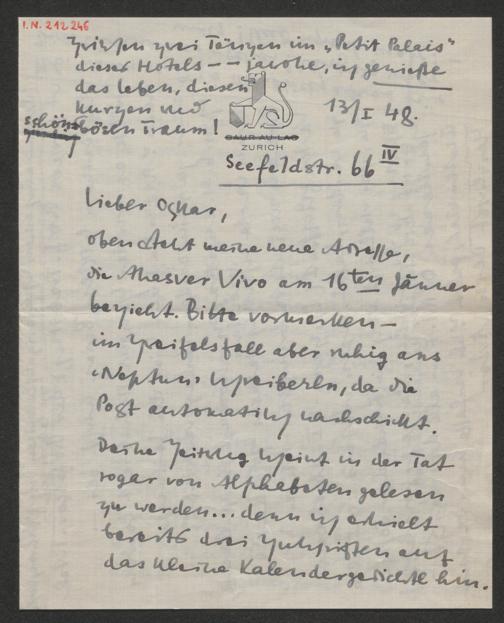 I.N. 212.246
zwischen zwei Tänzen im „Petit Palais"
dieses Hotels — — jawohl, ich genieße
das Leben, diesen
kurzen und
schönen bösen Traum!
13/I 48.
BAUR AU LAC
ZURICH
Seefeldstr. 66 IV
Lieber Oskar,
oben steht meine neue Adresse,
die Ahasver Vivo am 16ten Jänner
bezieht. Bitte vormerken —
im Zweifelsfall aber ruhig ans
„Neptun" schreiberln, da die
Post automatisch nachschickt.
Deine Zeitung scheint in der Tat
sogar von Alphabeten gelesen
zu werden... denn ich erhielt
bereits drei Zuschriften auf
das kleine Kalendergedichtl hin.